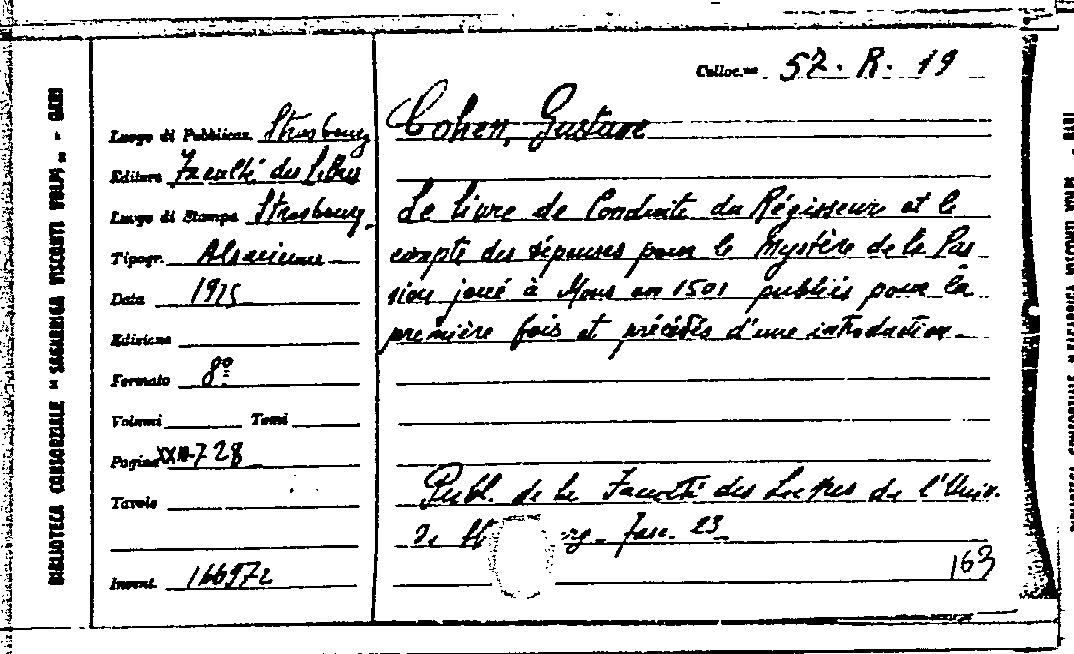 BIBLIOTECA CONSORZIALE "SAGARRIGA VISCONTI VOLPI" - BARI
Colloc.ne 57. R. 19
Luogo di Pubblicaz. Strasbourg
Editore Faculté des Lettres
Luogo di Stampa Strasbourg.
Tipogr. Alsacienne
Data 1925
Edizione
Formato 8º
Volumi Tomi
Pagine XXIII-728
Tavole
Invent. 166972
Cohen, Gustave
Le livre de Conduite du Régisseur et le
compte des dépenses pour le Mystère de la Pas
sion joué à Mons en 1501 publiés pour la
première fois et précédés d'une introduction.
Publ. de la Faculté des Lettres de l'Univ.
de St rg. Fasc. 23
163